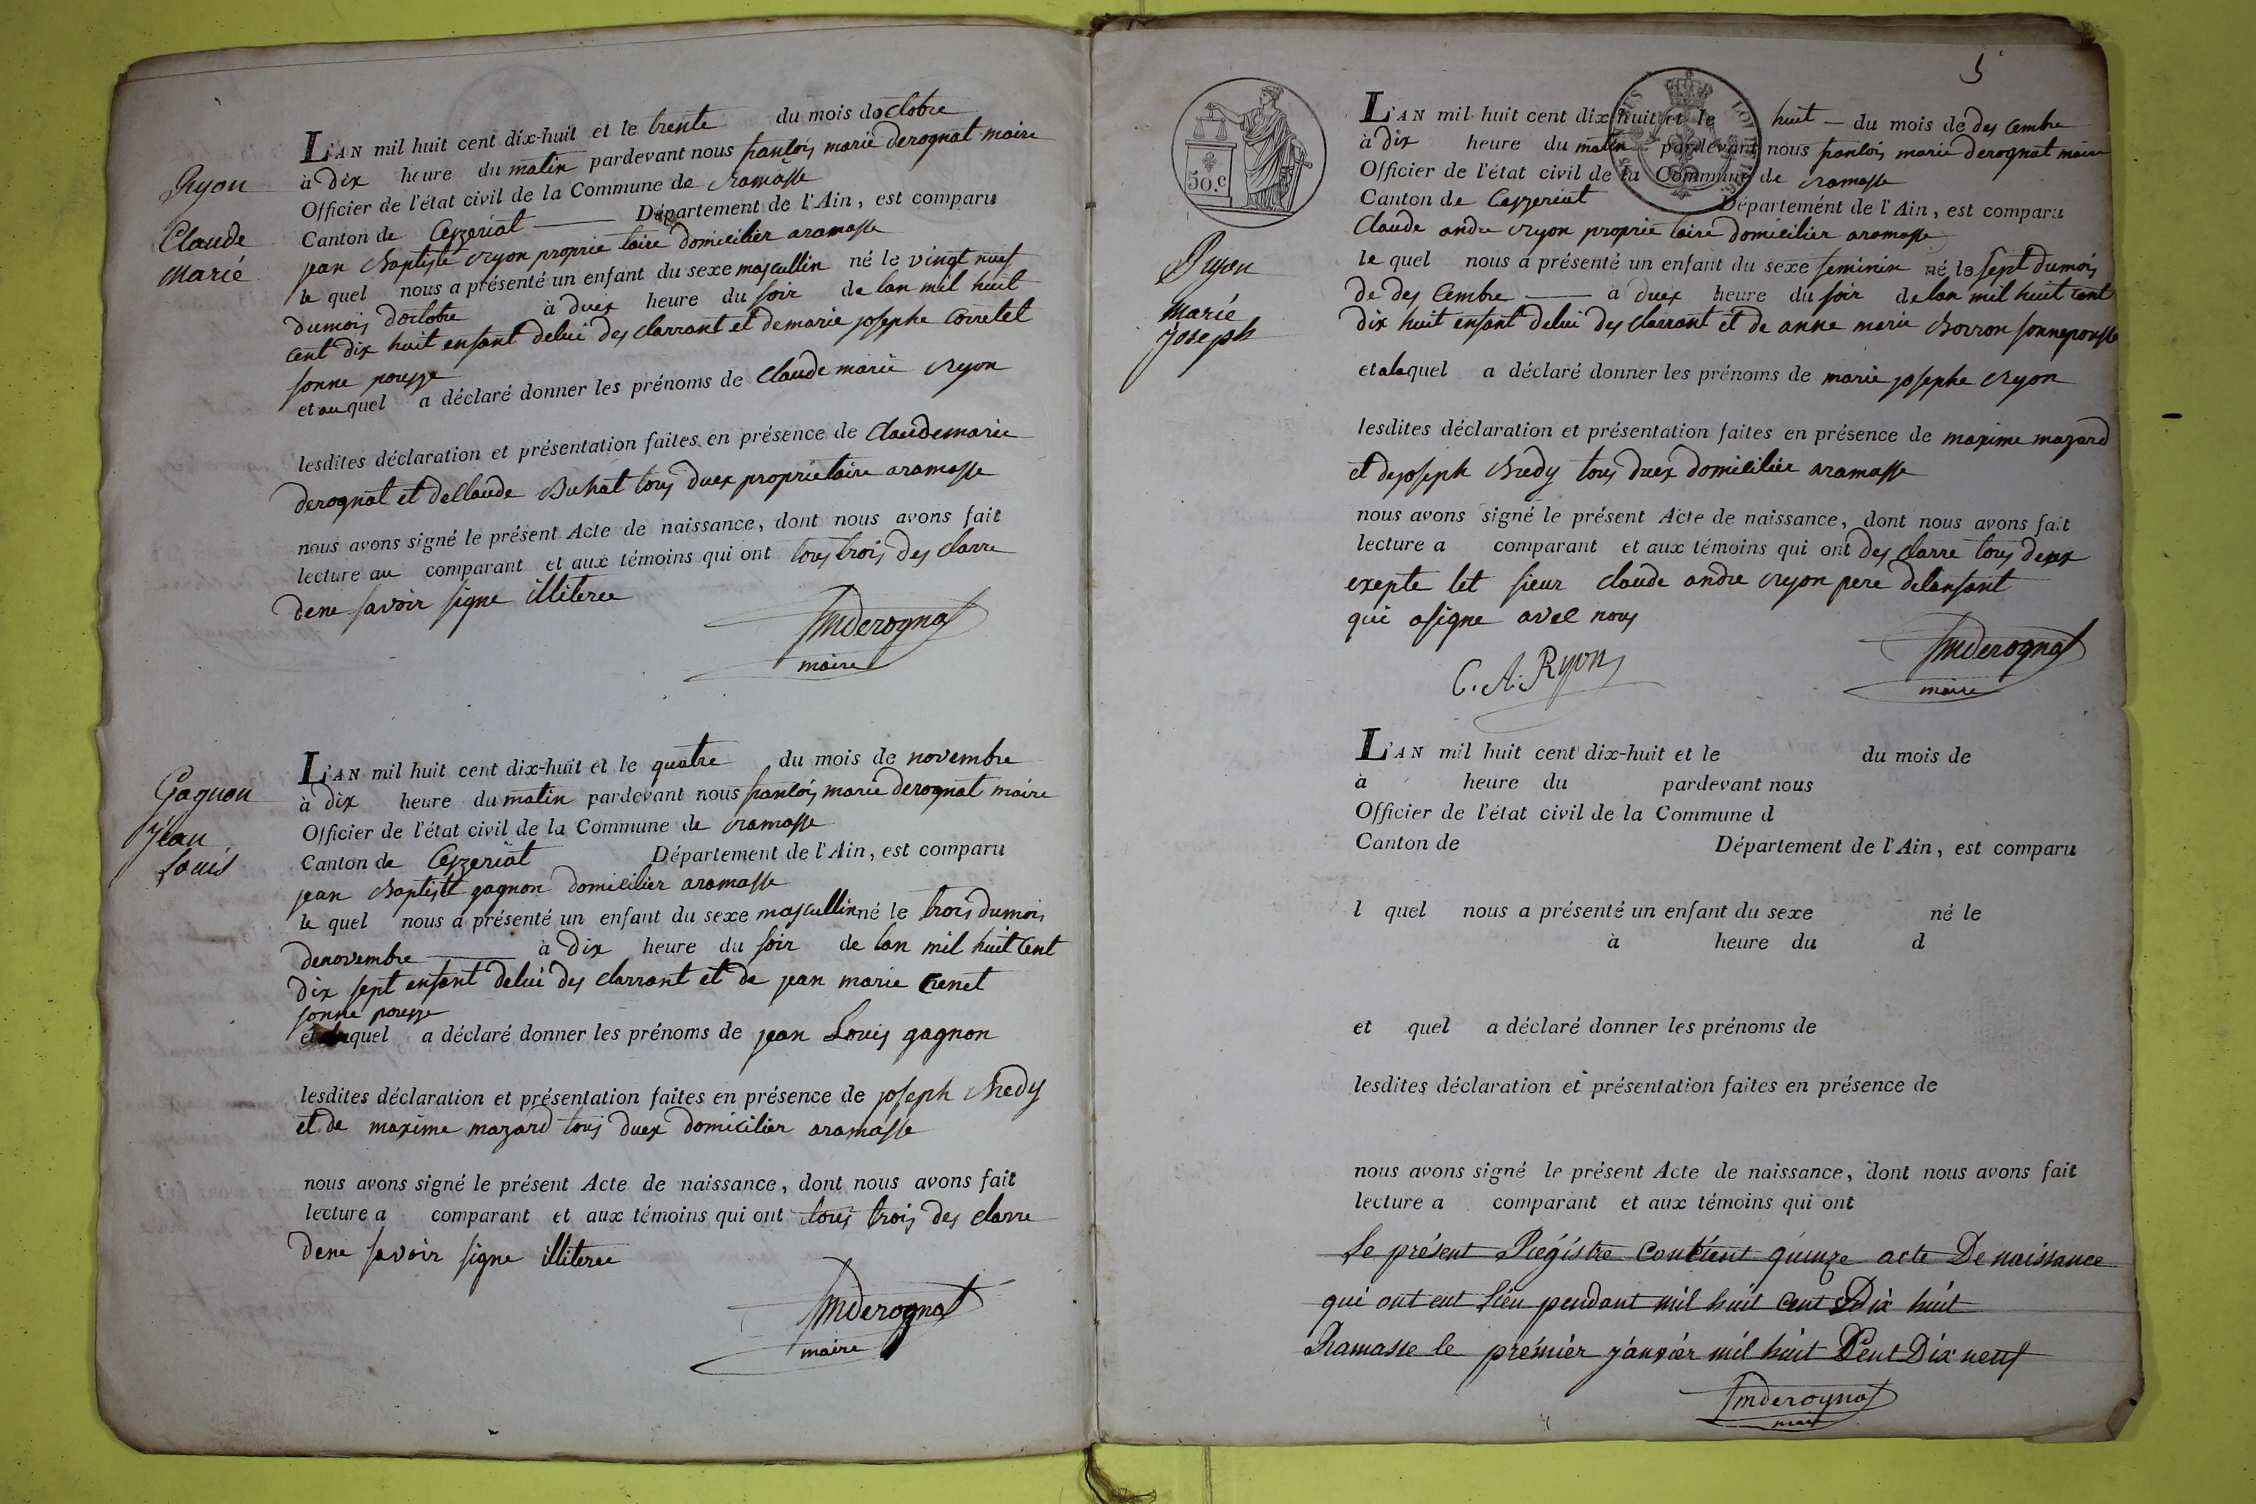 Ryon
Claude
Marie
L'AN mil huit cent dix-huit et le trente du mois doctobre
à dix heure du matin pardevant nous franlois marie derognat maire
Officier de l'état civil de la Commune de ramasse
Canton de Ceyzeriat Département de l'Ain, est comparu
jean Baptiste ryon proprie taire domicilier aramasse
le quel nous a présenté un enfant du sexe mascullin né le vingt neuf
dumois doctobre à duex heure du soir de lan mil huit
cent dix huit enfant delui des clarrant et demarie josephe Corretet
sonne pousse
et au quel a déclaré donner les prénoms de Claude marie ryon
lesdites déclaration et présentation faites en présence de Claudemarie
derognat et declaude Buhat tous duex proprietaire aramasse
nous avons signé le présent Acte de naissance, dont nous avons fait
lecture au comparant et aux témoins qui ont tous trois des clarre
dene savoir signe illiteree
fmderognat
maire
Gagnon
Jean
Louis
L'AN mil huit cent dix-huit et le quatre du mois de novembre
à dix heure du matin pardevant nous franlois marie derognat maire
Officier de l'état civil de la Commune de ramasse
Canton de Ceyzeriat Département de l'Ain, est comparu
jean Baptiste gagnon domicilier aramasse
le quel nous a présenté un enfant du sexe mascullin né le trois dumois
denovembre à dix heure du soir de lan mil huit Cent
dix sept enfant delui des clarrant et de jean marie Cenet
sonne pousse
et quel a déclaré donner les prénoms de jean Louis gagnon
lesdites déclaration et présentation faites en présence de joseph Bredy
et de maxime mazard tous duex domicilier aramasse
nous avons signé le présent Acte de naissance, dont nous avons fait
lecture a comparant et aux témoins qui ont tous trois des clarre
dene savoir signe illiteree
fmderognat
maire
5
50.c
Ryon
Marie
Joseph
L'AN mil huit cent dix-huit et le huit du mois de des cembre
à dix heure du matin pardevant nous franlois marie derognat maire
Officier de l'état civil de la Commune de ramasse
Canton de Ceyzeriat Département de l'Ain, est comparu
Claude andre ryon proprie taire domicilier aramasse
le quel nous a présenté un enfant du sexe feminin né le sept dumois
de des Cembre à duex heure du soir delan mil huit cent
dix huit enfant delui des clarrant et de anne marie Borron sonnepousse
et ala quel a déclaré donner les prénoms de marie josephe ryon
lesdites déclaration et présentation faites en présence de maxime mazard
et dejoseph Bredy tous duex domicilier aramasse
nous avons signé le présent Acte de naissance, dont nous avons fait
lecture a comparant et aux témoins qui ont des clarre tous deux
exepte let sieur claude andre ryon pere delanfant
qui asigne avec nous
C. A. Ryon
fmderognat
maire
L'AN mil huit cent dix-huit et le du mois de
à heure du pardevant nous
Officier de l'état civil de la Commune d
Canton de Département de l'Ain, est comparu
l quel nous a présenté un enfant du sexe né le
à heure du d
et quel a déclaré donner les prénoms de
lesdites déclaration et présentation faites en présence de
nous avons signé le présent Acte de naissance, dont nous avons fait
lecture a comparant et aux témoins qui ont
Le présent Régistre contient quinze acte De naissance
qui ont eut lieu pendant mil huit cent Dix huit
Ramasse le prémiér janviér mil huit Cent Dix neuf
fmderognat
maire